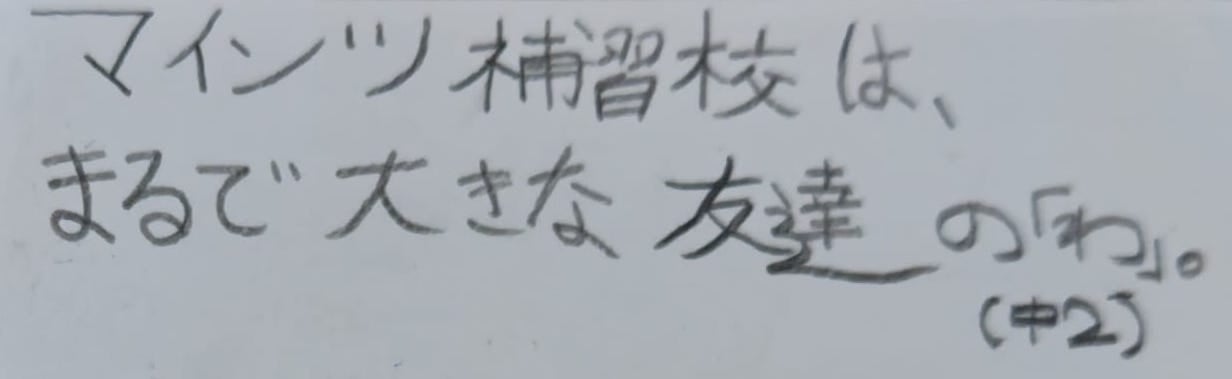 マインツ補習校は、
まるで大きな友達の「わ」。
(中2)